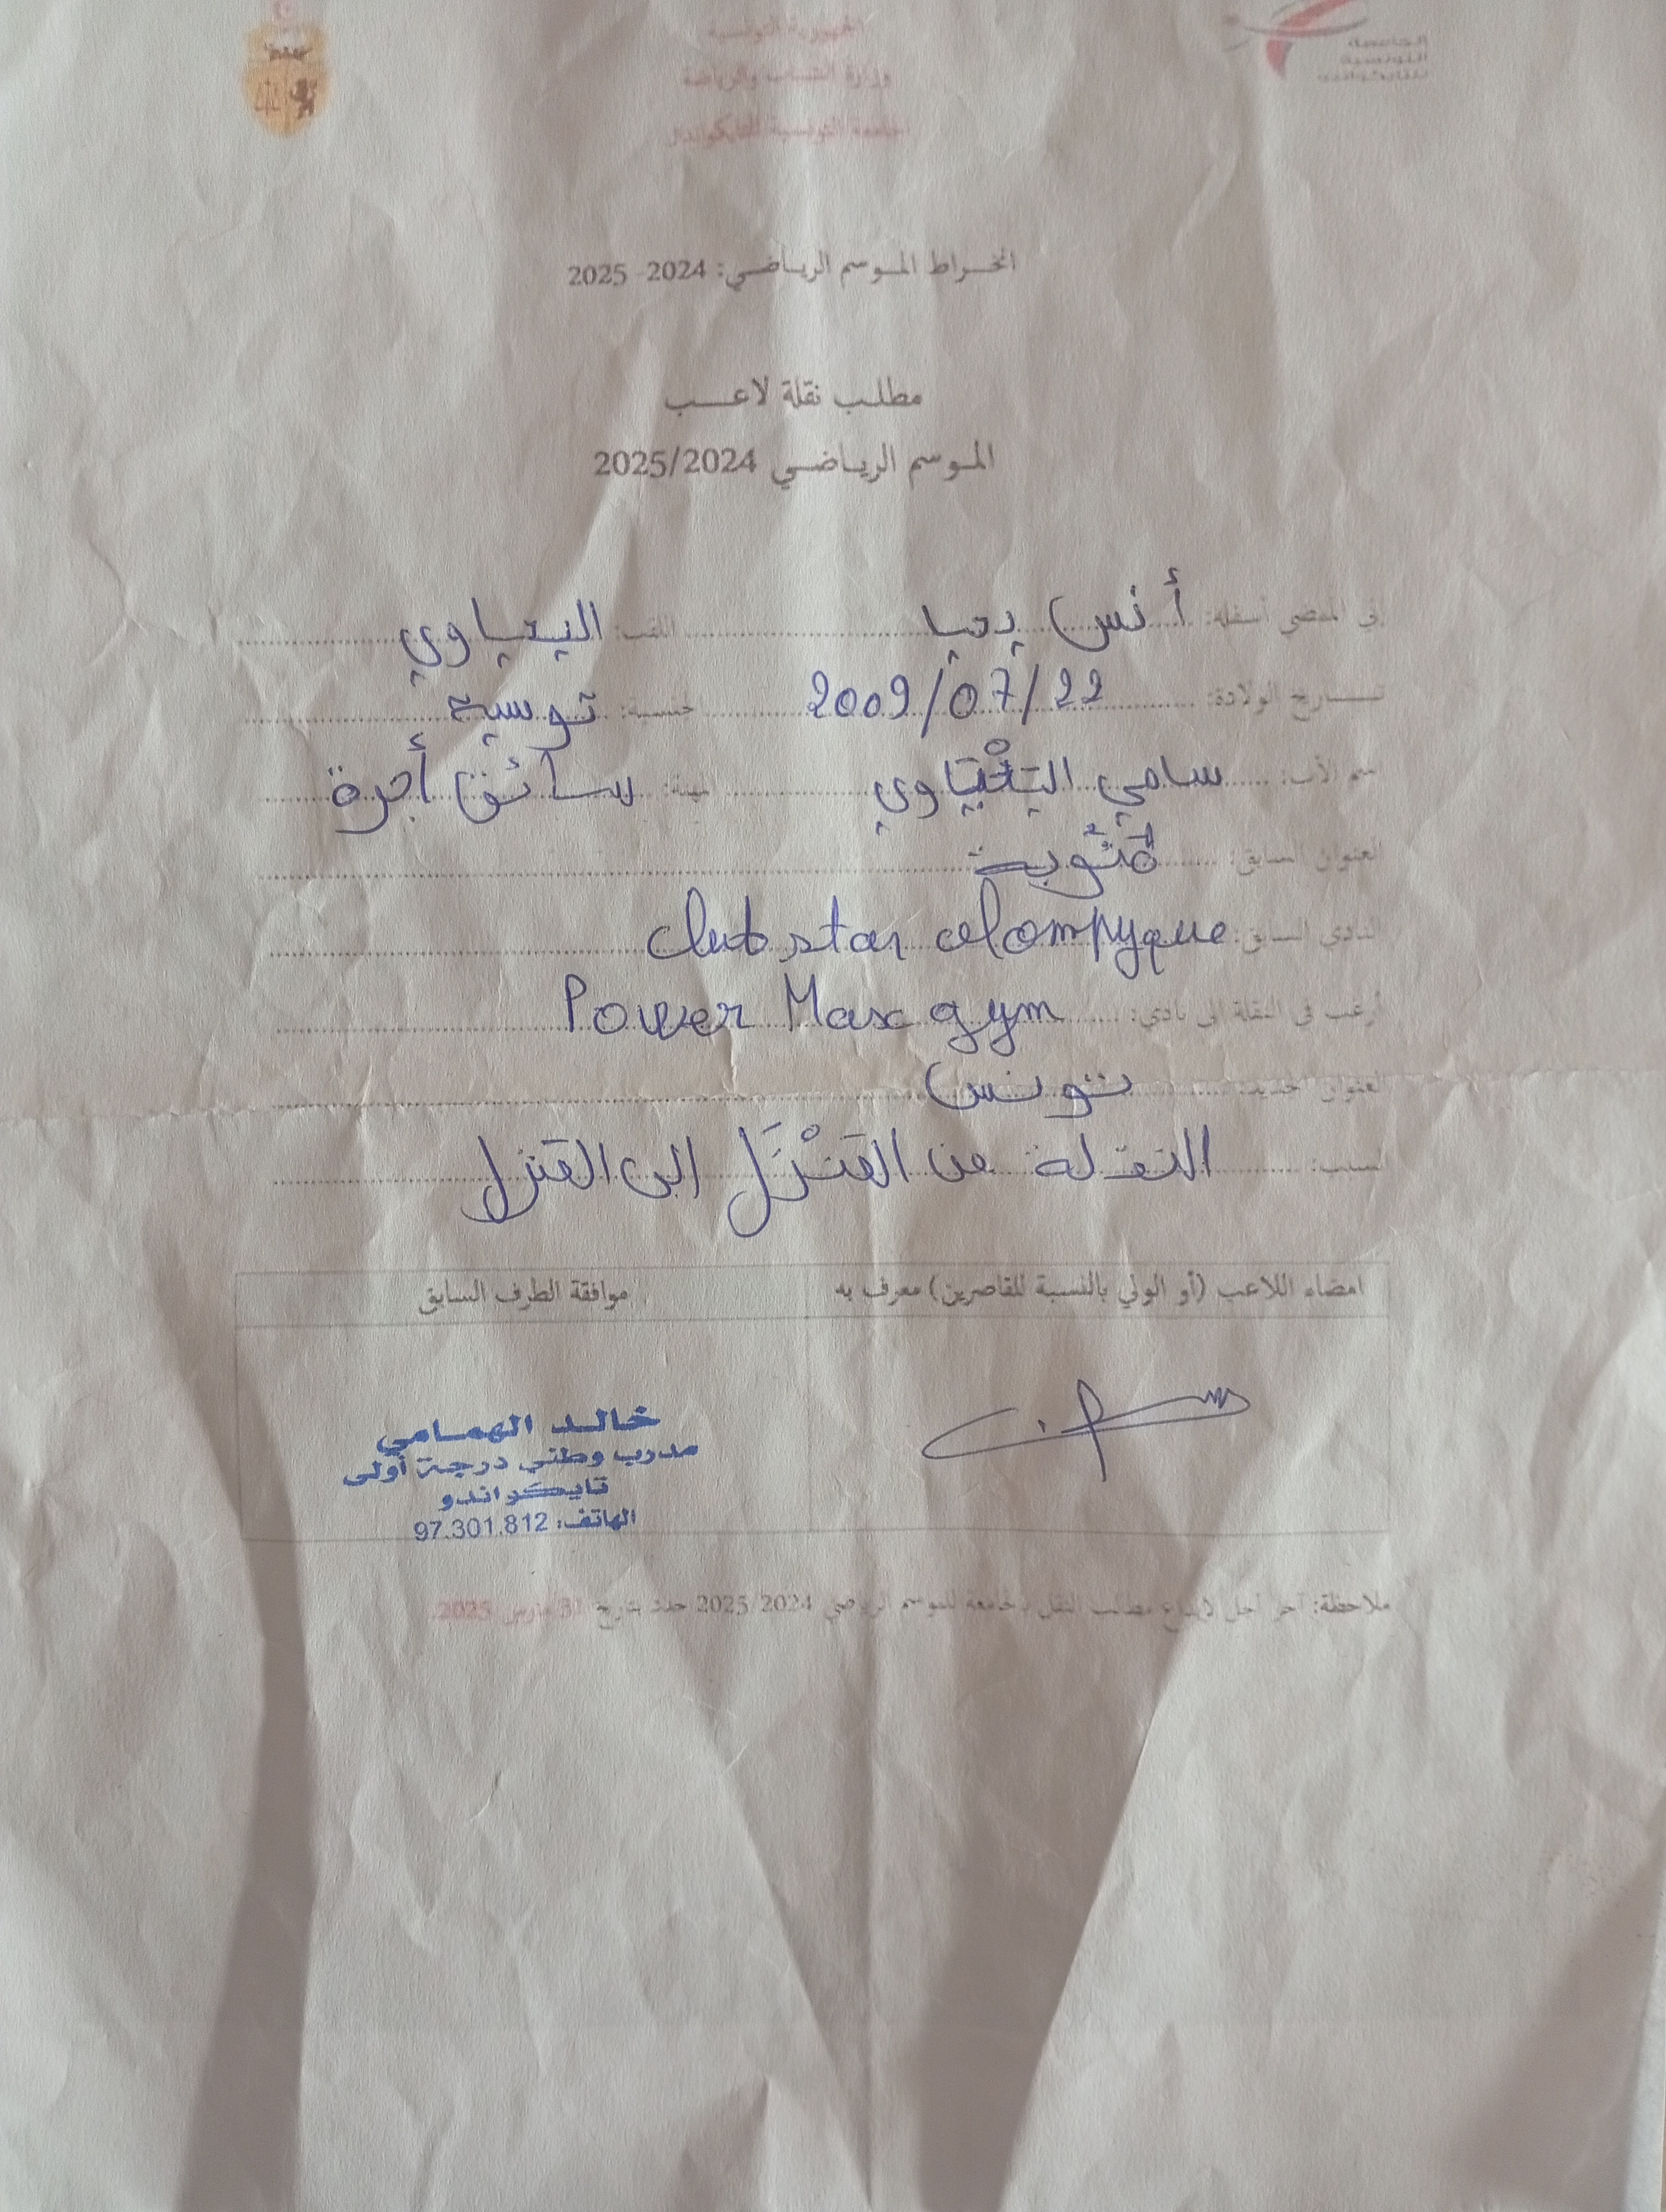 الجمهورية التونسية
وزارة الشباب والرياضة
الجامعة التونسية للتايكواندو
الجامعة
التونسية
للتايكواندو
انخراط الموسم الرياضي: 2024- 2025
مطلب نقلة لاعب
الموسم الرياضي 2025/2024
إني الممضي أسفله: أنس يحيا اللقب: اليحياوي
تاريخ الولادة: 2009/07/22 جنسية: تونسية
اسم الأب: سامي اليحياوي المهنة: سائق أجرة
العنوان السابق: منوبة
النادي السابق: Club star olompyque
أرغب في النقلة الى نادي: Power Max gym
العنوان الجديد: تونس
السبب: النقلة من المنزل الى المنزل
امضاء اللاعب (أو الولي بالنسبة للقاصرين) معرف به
موافقة الطرف السابق
خالد الهمامي
مدرب وطني درجة أولى
تايكواندو
الهاتف: 97.301.812
ملاحظة: آخر أجل لإيداع مطالب النقل بالجامعة للموسم الرياضي 2024/2025 حدد بتاريخ 31 مارس 2025.